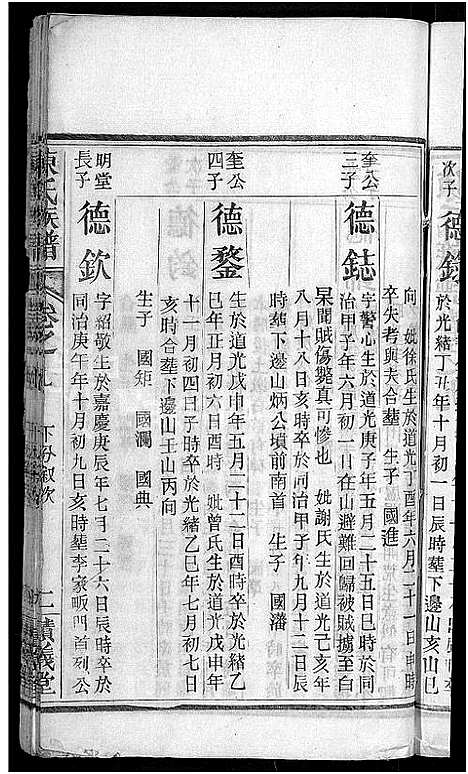 次子
德
於光緒丁丑年十月初一日辰時塟下邊山亥山巳
向 妣徐氏生於道光丁酉年六月二十一日申時
卒失考與夫合塟 生子 國進
奎公
三子
德鋕
字警心生於道光庚子年五月二十五日巳時於同
治甲子年六月初一日在山避難回歸被賊擄至白
杲閣賊傷斃真可慘也 妣謝氏生於道光己亥年
八月十八日亥時卒於同治甲子年九月十二日辰
時塟下邊山炳公墳前南首 生子 國藩
奎公
四子
德鍪
生於道光戊申年五月二十二日酉時卒於光緒乙
巳年正月初六日酉時 妣曾氏生於道光戊申年
十一月初四日子時卒於光緒乙巳年七月初七日
亥時合塟下邊山壬山丙向
生子 國矩 國瀾 國典
明堂
長子
德欽
字紹敬生於嘉慶庚辰年七月二十六日辰時卒於
同治庚午年十月初九日亥時塟李家畈門首列公
陳氏族譜
卷之九
下分叙次
一
積義堂